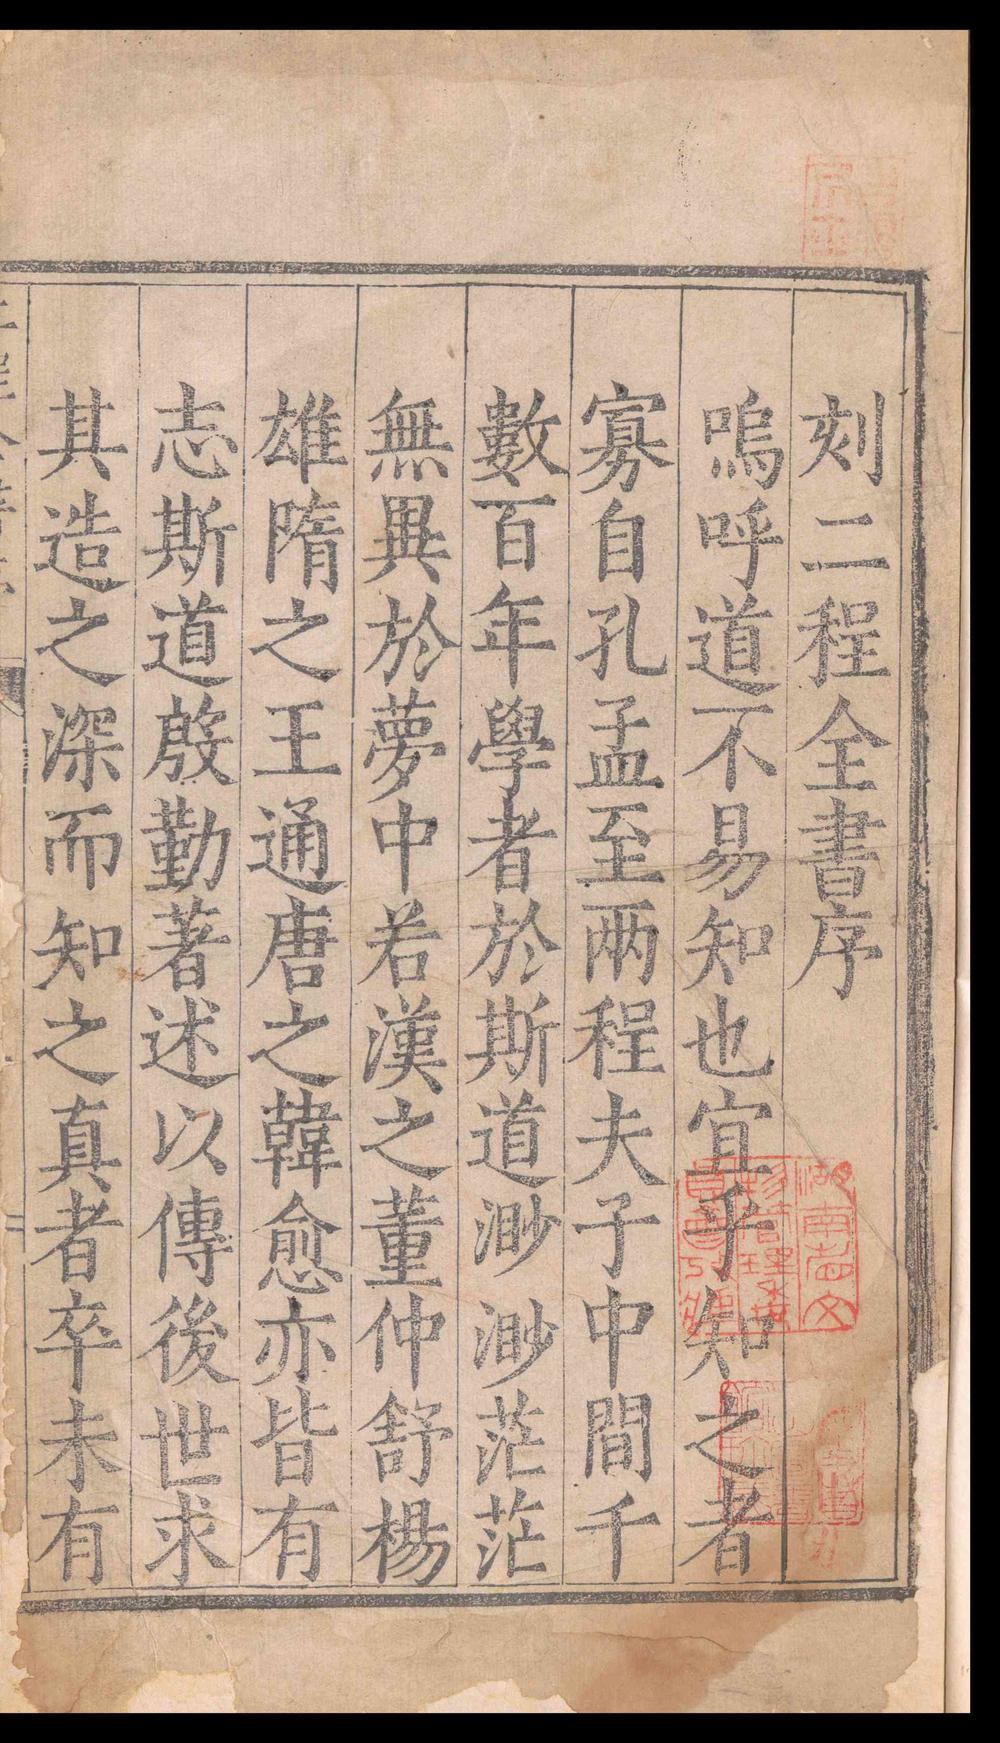 刻二程全書序
嗚呼道不易知也宜乎知之者
寡自孔孟至兩程夫子中間千
數百年學者於斯道渺渺茫茫
無異於夢中若漢之董仲舒楊
雄隋之王通唐之韓愈亦皆有
志斯道殷勤著述以傳後世求
其造之深而知之真者卒未有